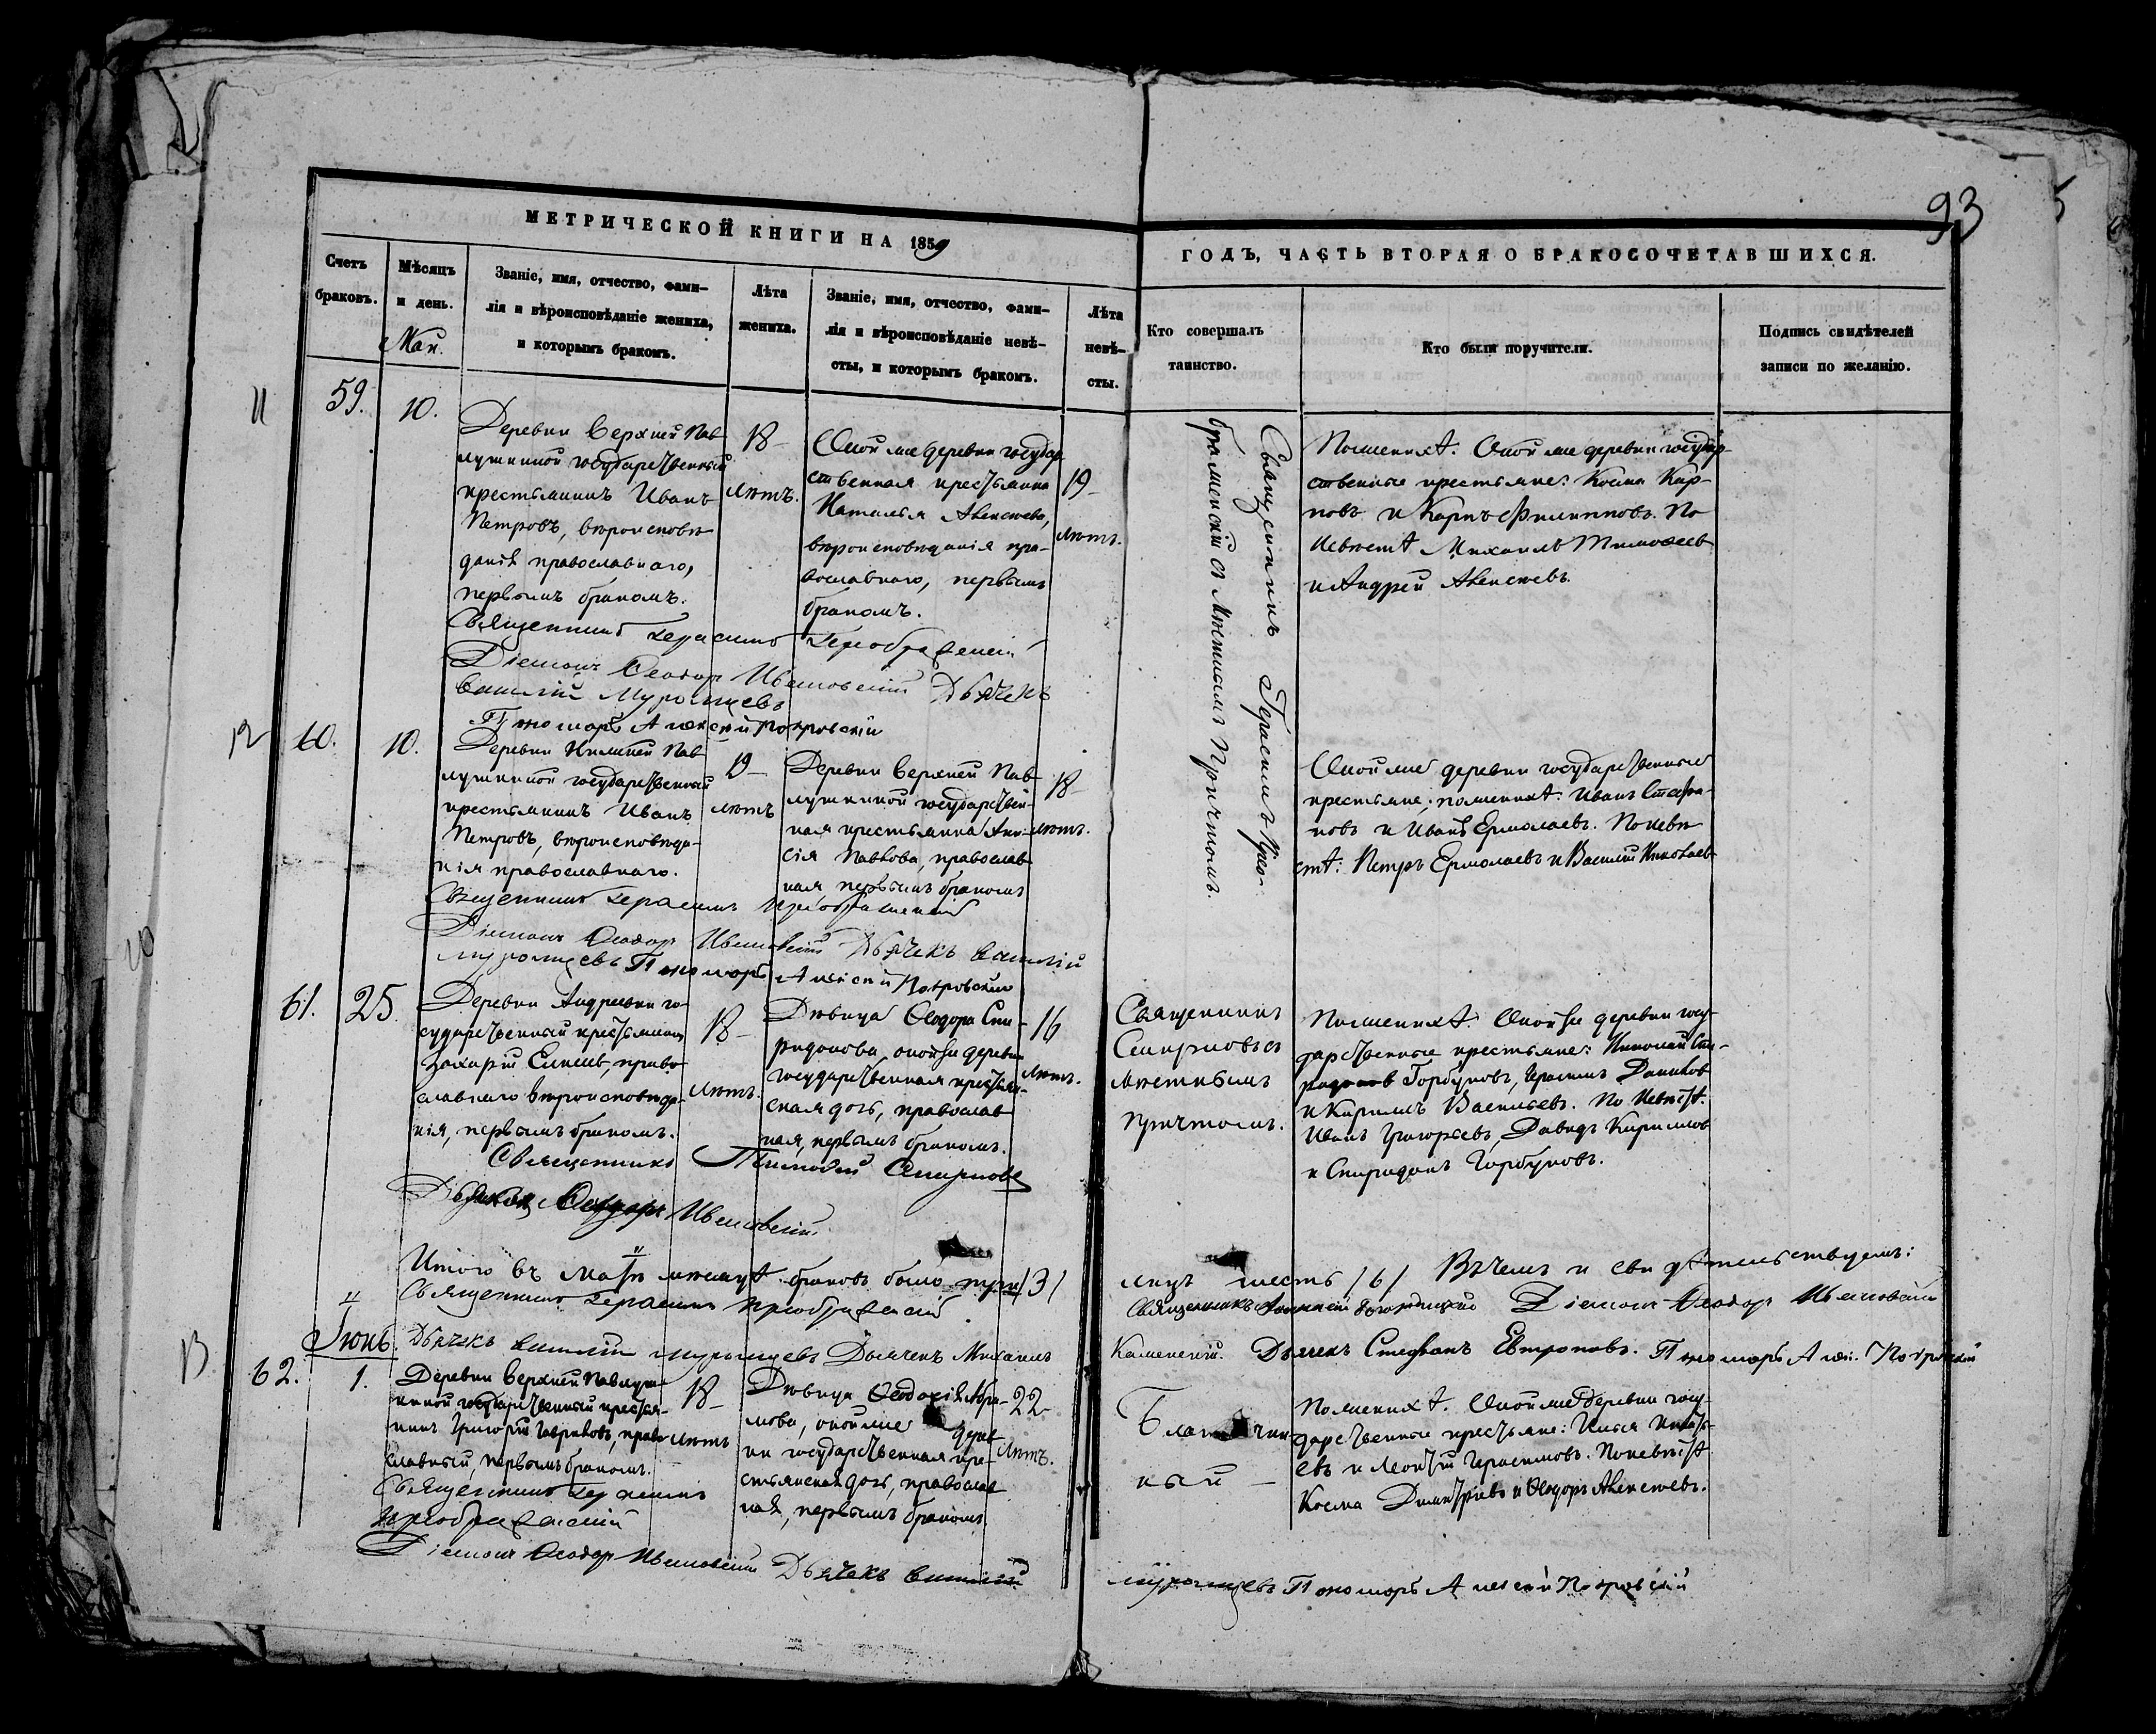 МЕТРИЧЕСКОЙ КНИГИ НА 1859
Счетъ браковъ.
Мѣсяцъ и день.
Званіе, имя, отчество, фами-
лія и вѣроисповѣданіе жениха,
и которымъ бракомъ.
Лѣта
жениха.
Званіе, имя, отчество, фами-
лія и вѣроисповѣданіе невѣ-
сты, и которымъ бракомъ.
Лѣта
невѣ-
сты.
93
ГОДЪ, ЧАСТЬ ВТОРАЯ О БРАКОСОЧЕТАВШИХСЯ.
Кто совершалъ
таинство.
Кто были поручители.
Подпись свидѣтелей
записи по желанію.
Маи.
11
59.
10.
Деревни Верхней Пав-
лушкиной государственный
крестьянинъ Иванъ
Петровъ, вѣроисповѣ-
данія православнаго,
первымъ бракомъ.
18
лѣтъ.
Оной же деревни государ-
ственная крестьянка
Наталья Алексѣева,
вѣроисповѣданія пра-
вославнаго, первымъ
бракомъ.
19
лѣтъ.
Священникъ Герасимъ Прео-
браженскій съ Мѣстнымъ Причтомъ.
По женихѣ: Оной же деревни государ-
ственные крестьяне: Косма Кар-
повъ и Карпъ Филипповъ. По
невѣстѣ Михаилъ Тимоѳеевъ
и Андрей Алексѣевъ.
Священникъ Герасимъ Преображенскій
Діаконъ Ѳеодоръ Ивановскій Дьячекъ
Василій Муромцевъ
Пономарь Алексѣй Покровскій
12
60.
10.
Деревни Нижней Пав-
лушкиной государственный
крестьянинъ Иванъ
Петровъ, вѣроисповѣда-
нія православнаго.
19
лѣтъ
Деревни Верхней Пав-
лушкиной государствен-
ная крестьянка
Павлова, православ-
ная, первымъ бракомъ
18
лѣтъ.
Оной же деревни государственные
крестьяне; по женихѣ: Иванъ Стефа-
новъ и Иванъ Ермолаевъ. По невѣ-
стѣ: Петръ Ермолаевъ и Василій Николаевъ
Священникъ Герасимъ Преображенскій
Діаконъ Ѳеодоръ Ивановскій Дьячекъ Василій
Муромцевъ Пономарь Алексѣй Покровскій
61.
25.
Деревни Андреевки го-
сударственный крестьянинъ
Захарій право-
славнаго вѣроисповѣда-
нія, первымъ бракомъ.
18
лѣтъ.
Дѣвица Ѳеодора Спи-
ридонова, оной же деревни
государственная крестьян-
ская дочь, православ-
ная, первымъ бракомъ.
16
лѣтъ.
Священникъ
Смирновъ съ
мѣстнымъ
причтомъ.
По женихѣ: Оной же деревни госу-
дарственные крестьяне: Николай Спи-
ридоновъ Горбуновъ, Герасимъ Даниловъ
и Кирилъ Васильевъ. По невѣстѣ.
Иванъ Григорьевъ, Давидъ Кириловъ
и Спиридонъ Горбуновъ.
Священникъ Тимоѳей Смирновъ
Ѳеодоръ Ивановскій
Итого въ Маѣ мужескъ браковъ было три /3/
лицъ шесть /6/ Въ чемъ и свидѣтельствуемъ:
Священникъ Герасимъ Преображенскій
Священникъ Діаконъ Ѳеодоръ Ивановскій
Дьячекъ Василій Муромцевъ Дьячекъ Михаилъ
Каменскій. Дьячекъ Стефанъ Евтроповъ. Пономарь Алек. Покровскій
Іюнь.
13
62.
1.
Деревни Верхней Павлуш-
киной государственный крестья-
нинъ Григорій Гавриловъ, право-
славный, первымъ бракомъ.
18
лѣтъ
Дѣвица Абра-
мова, оной же дерев-
ни государственная кре-
стьянская дочь, православ-
ная, первымъ бракомъ.
22
лѣтъ.
Благочин-
ный
По женихѣ. Оной же деревни госу-
дарственные крестьяне:
Герасимовъ. По невѣстѣ
Косма Димитріевъ и Ѳеодоръ Алексѣевъ.
Священникъ Герасимъ
Преображенскій
Діаконъ Ѳеодоръ Ивановскій Дьячекъ Василій
Муромцевъ Пономарь Алексѣй Покровскій